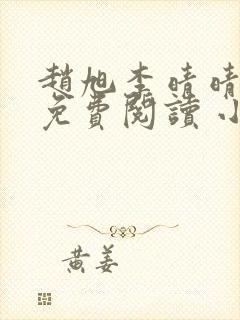 趙旭李晴晴
免費閱讀小
黃姜